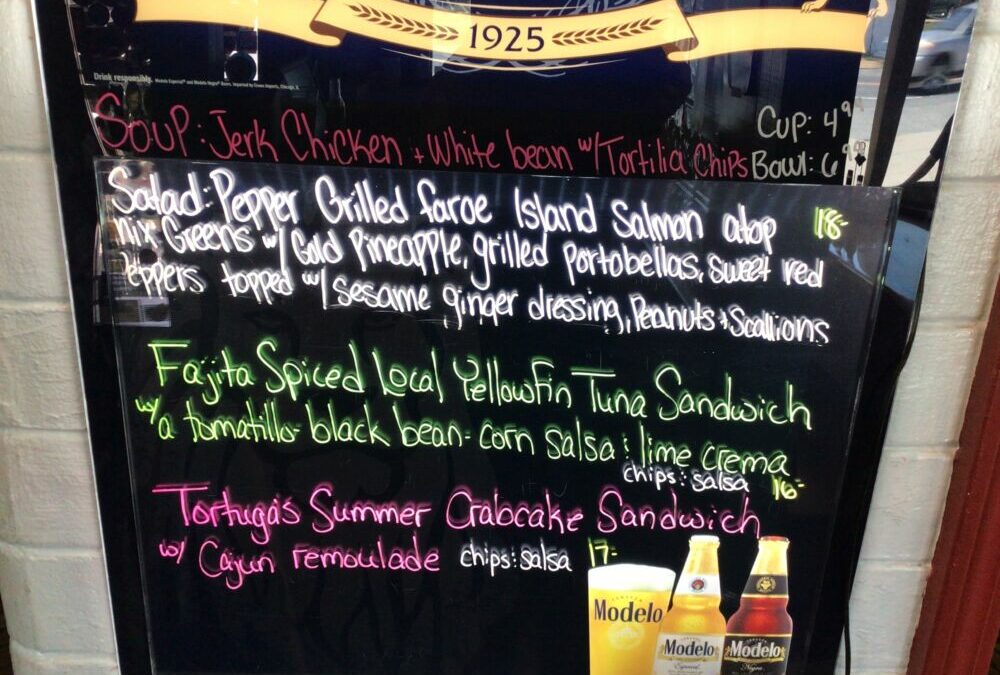 1925
Drink responsibly.
Soup: Jerk Chicken + White bean w/ Tortilia Chips
Cup: 4
Bowl: 6
Salad: Pepper Grilled faroe Island Salmon atop 18-
Mix Greens w/ Gold Pineapple, grilled portobellas, sweet red
eppers topped w/ sesame ginger dressing, Peanuts + Scallions
Fajita Spiced Local Yellowfin Tuna Sandwich
w/ a tomatillo-black bean-corn salsa : lime crema
chips : salsa 16-
Tortuga's Summer Crabcake Sandwich
w/ Cajun remoulade chips : salsa 17-
Modelo
Modelo
Especial
Modelo
Negra